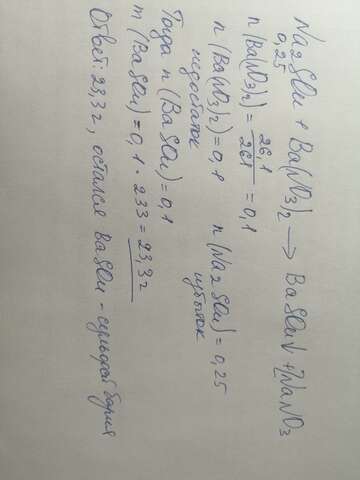 Na2SO4 + Ba(NO3)2 → BaSO4↓ + 2NaNO3
0,25
n (Ba(NO3)2) = 26,1 / 261 = 0,1
n (Ba(NO3)2) = 0,1 n (Na2SO4) = 0,25
недостаток избыток
Тогда n (BaSO4) = 0,1
m (BaSO4) = 0,1 · 233 = 23,3г
Ответ: 23,3г, остался BaSO4 - сульфат бария